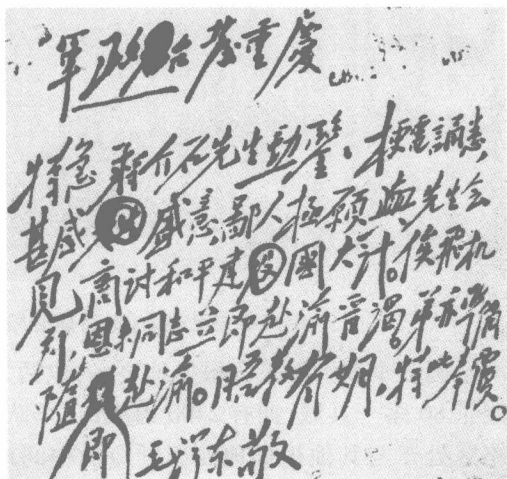 軍政台發重慶
特急 蔣介石先生勛鑒。梗電誦悉,
甚感盛意鄙人極願與先生会
見,商討和平建國大計。俟飛机
到,恩来同志立即赴渝晋謁。弟亦準備
隨赴渝。晤教有期,特此奉覆。
即 毛澤東敬